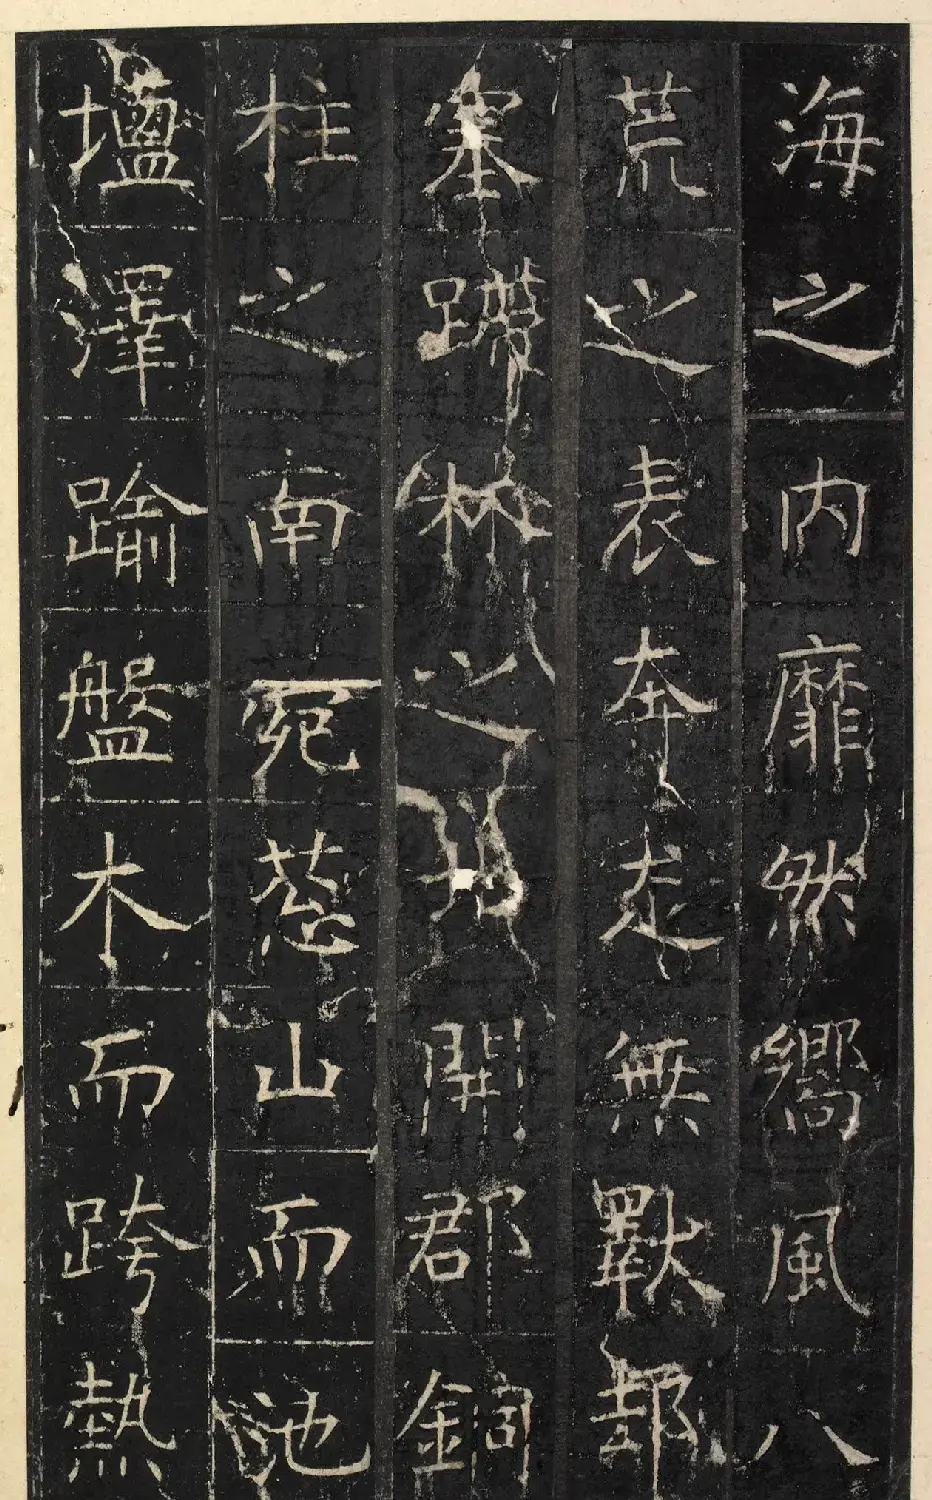 海之内靡然嚮風八
荒之表奔走無斁都
塞蹛林之北開郡銅
柱之南苑蔥山而池
塩澤踰盤木而跨熱